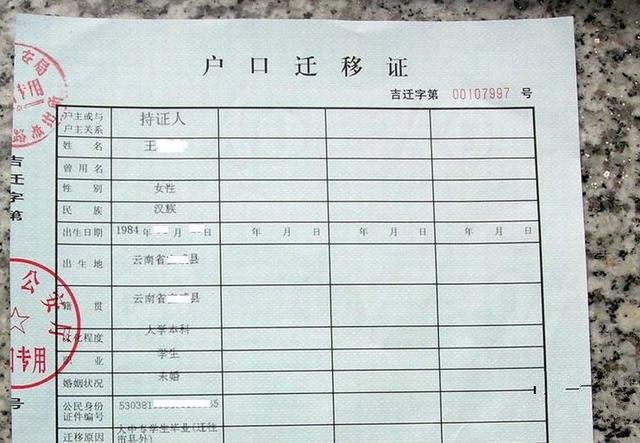 户口迁移证
吉迁字第 00107997 号
户主或与户主关系 持证人
姓名 王
曾用名
性别 女性
民族 汉族
出生日期 1984年 月 日 年 月 日 年 月 日 年 月 日
出生地 云南省 县
籍贯 云南省 县
文化程度 大学本科
职业 学生
婚姻状况 未婚
公民身份证件编号 530381 35
迁移原因 大中专学生毕业(迁往市县外)
吉迁字第
号
公安厅
口专用
安局
专用